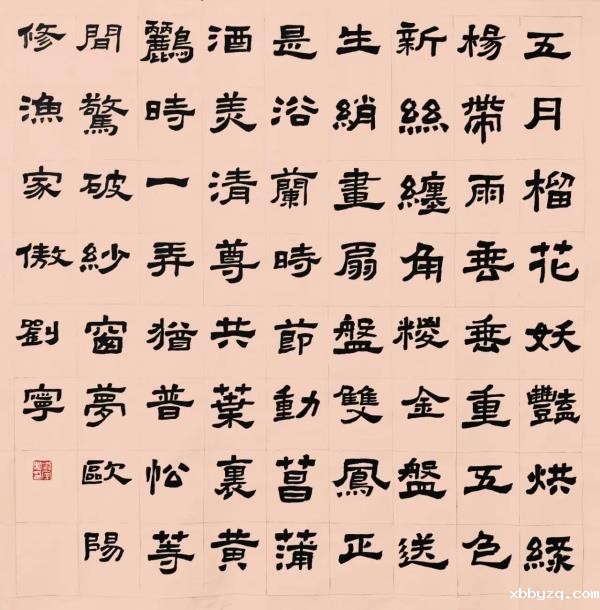 五月榴花妖豔烘綠
楊帶雨垂垂重五色
新絲纏角糉金盤送
生綃畫扇盤雙鳳正
是浴蘭時節動菖蒲
酒美清尊共葉裏黃
鸝時一弄猶普忪等
間驚破紗窗夢歐陽
修漁家傲劉寧
xbbyzq.com